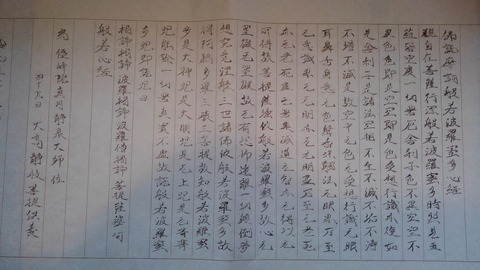 佛説摩訶般若波羅蜜多心経
観自在菩薩行深般若波羅蜜多時照見五
蘊皆空度一切苦厄舎利子色不異空空不
異色色即是空空即是色受想行識亦復如
是舎利子是諸法空相不生不滅不垢不浄
不増不減是故空中无色无受想行識无眼
耳鼻舌身意无色聲香味觸法无眼界乃至
无意識界无无明亦无无明盡乃至无老死
亦无老死盡无苦集滅道无智亦无得以无
所得故菩提薩埵依般若波羅蜜多故心无
罣礙无罣礙故无有恐怖遠離一切顛倒夢
想究竟涅槃三世諸佛依般若波羅蜜多故
得阿耨多羅三藐三菩提故知般若波羅蜜
多是大神咒是大明咒是无上咒是无等等
咒能除一切苦真實不虚故説般若波羅蜜
多咒即説咒曰
揭諦揭諦 波羅揭諦 波羅僧揭諦 菩提薩婆訶
般若心経
真月静泉大師位
大 静 菩提供養